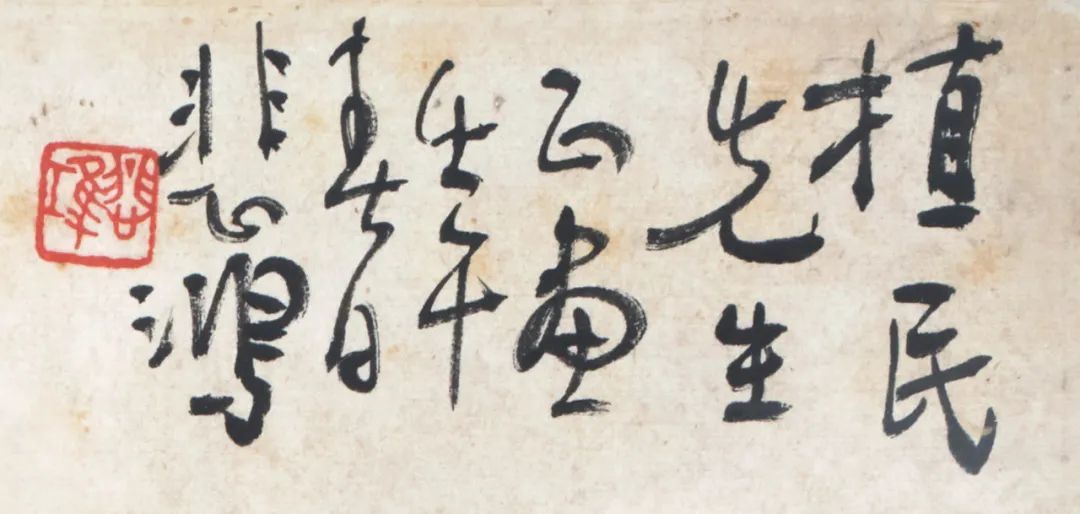 植民
先生
正畫
壬午
春日
悲鴻